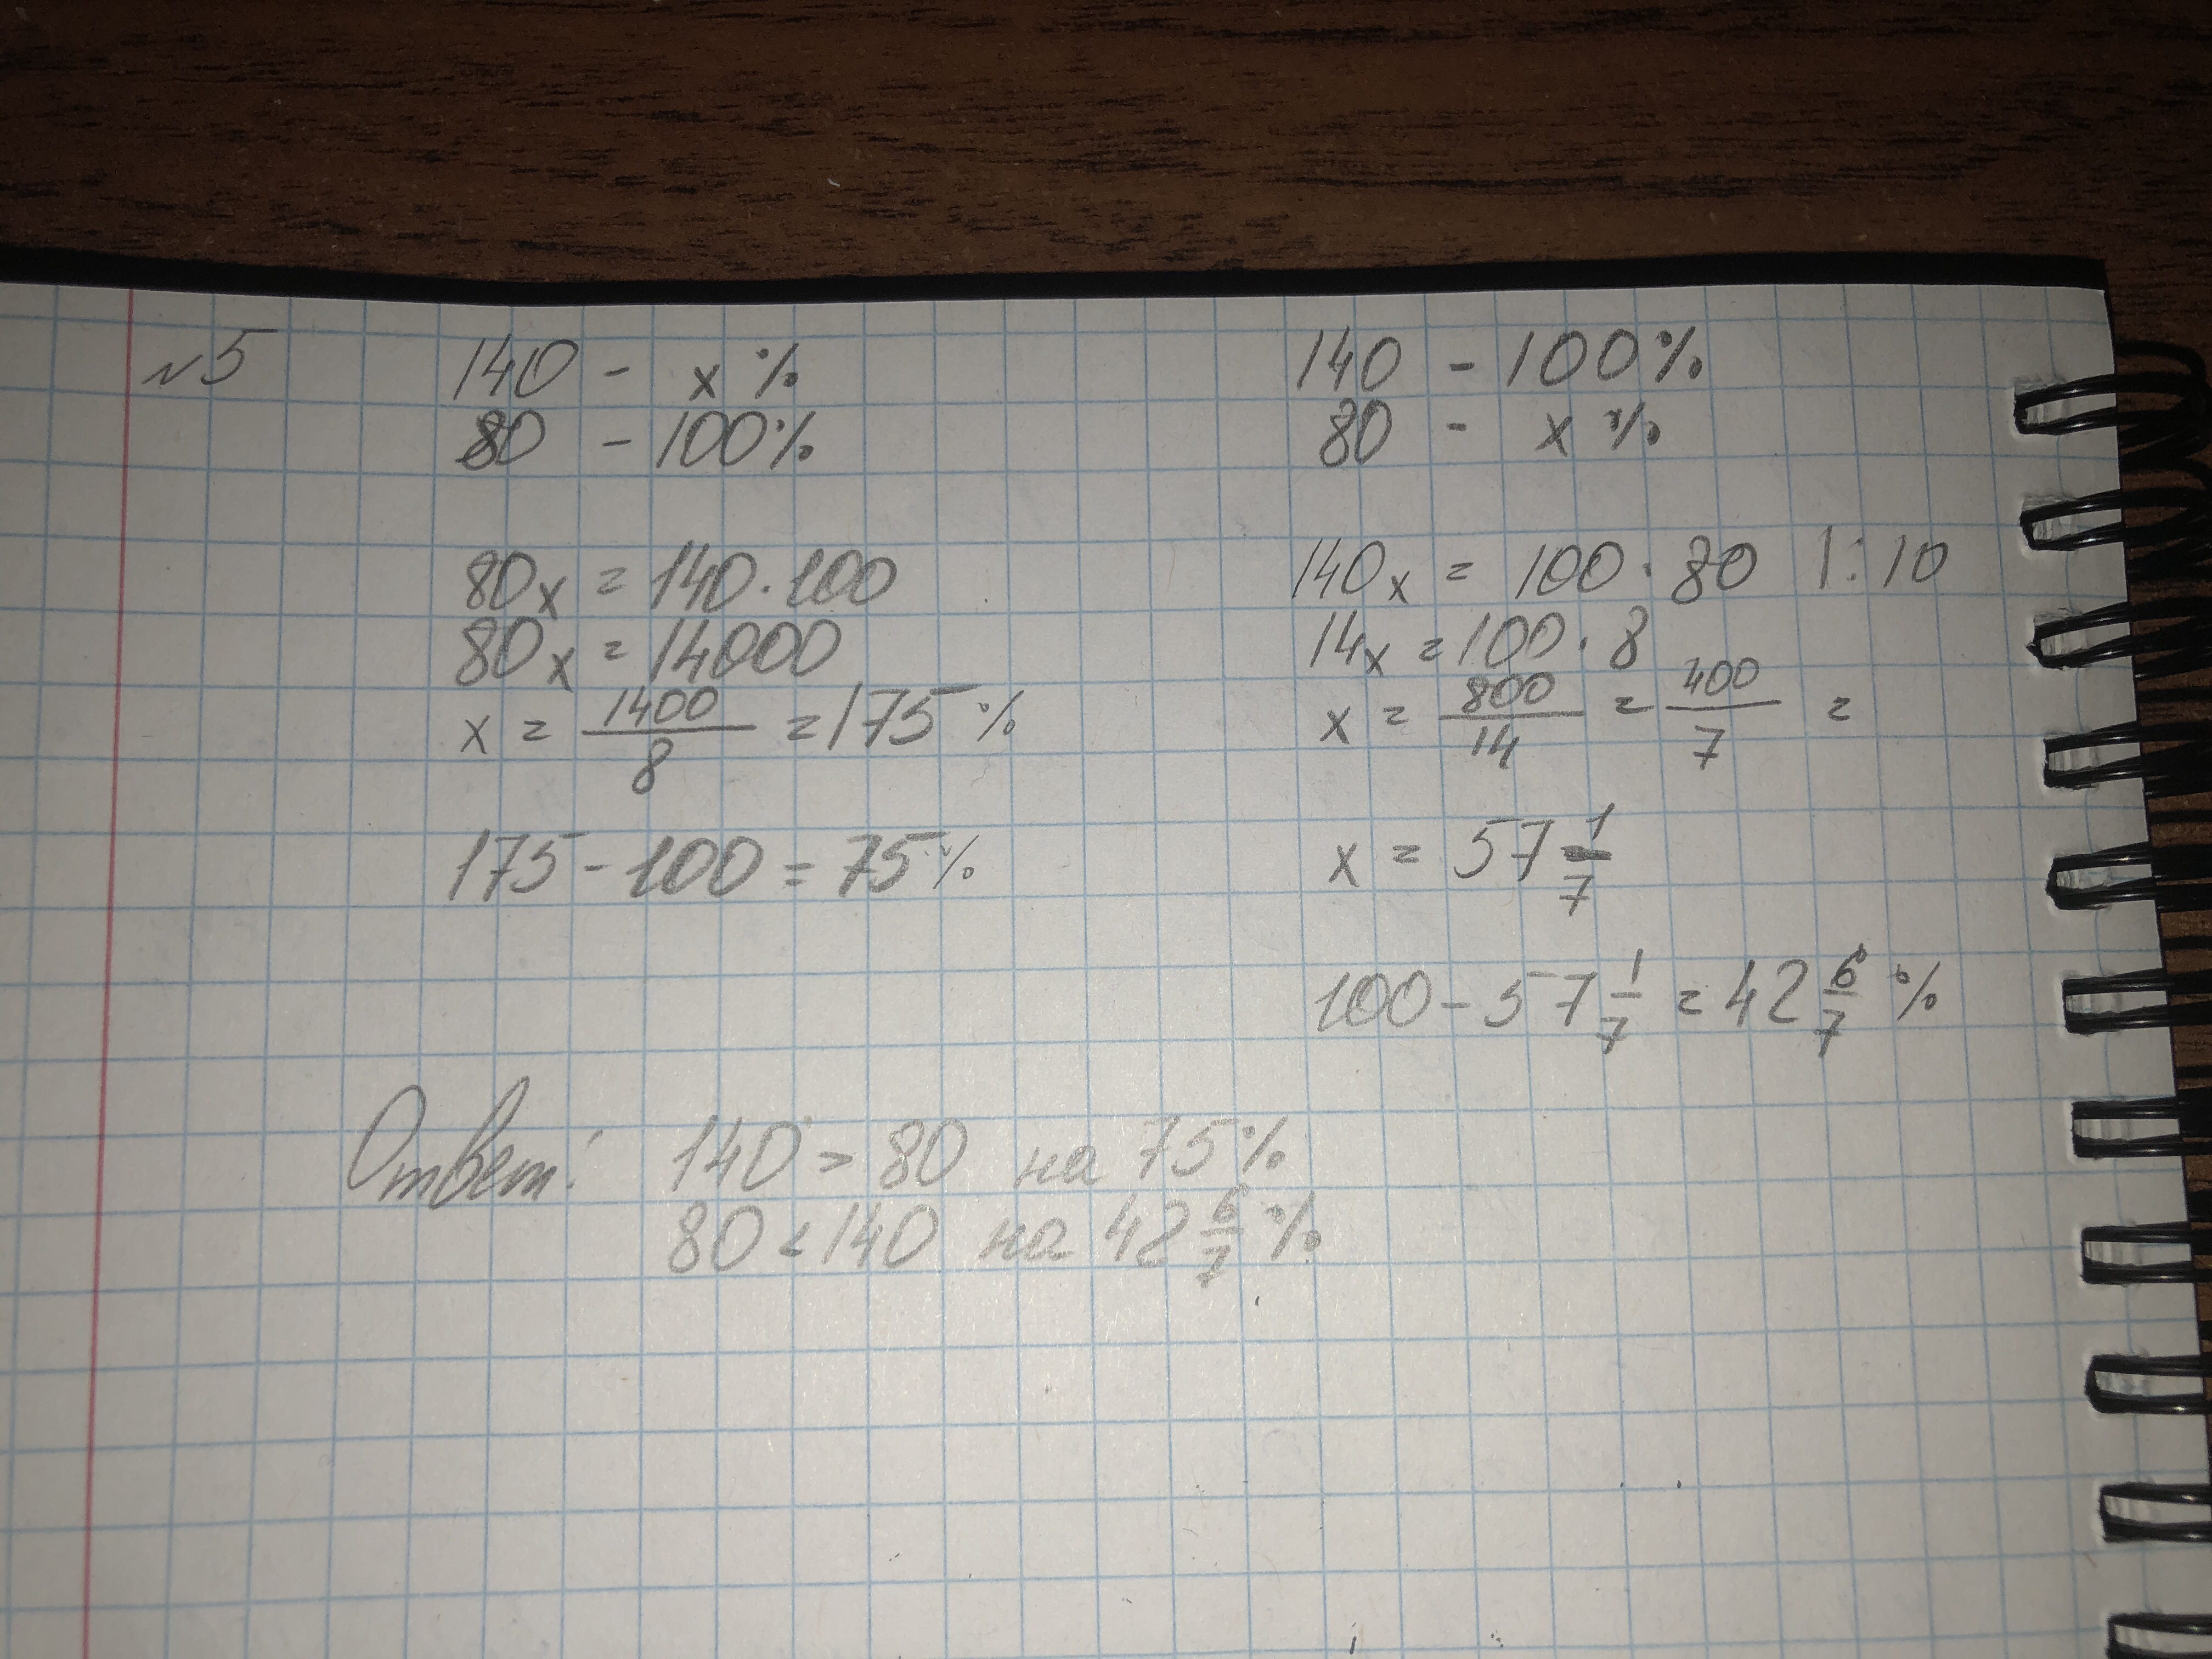 №5
140 - x %
80 - 100%
80x = 140 · 100
80x = 14000
x = 1400/8 = 175 %
175 - 100 = 75 %
140 - 100%
80 - x %
140x = 100 · 80 |: 10
14x = 100 · 8
x = 800/14 = 400/7 =
x = 57 1/7
100 - 57 1/7 = 42 6/7 %
Ответ: 140 > 80 на 75%
80 < 140 на 42 6/7 %